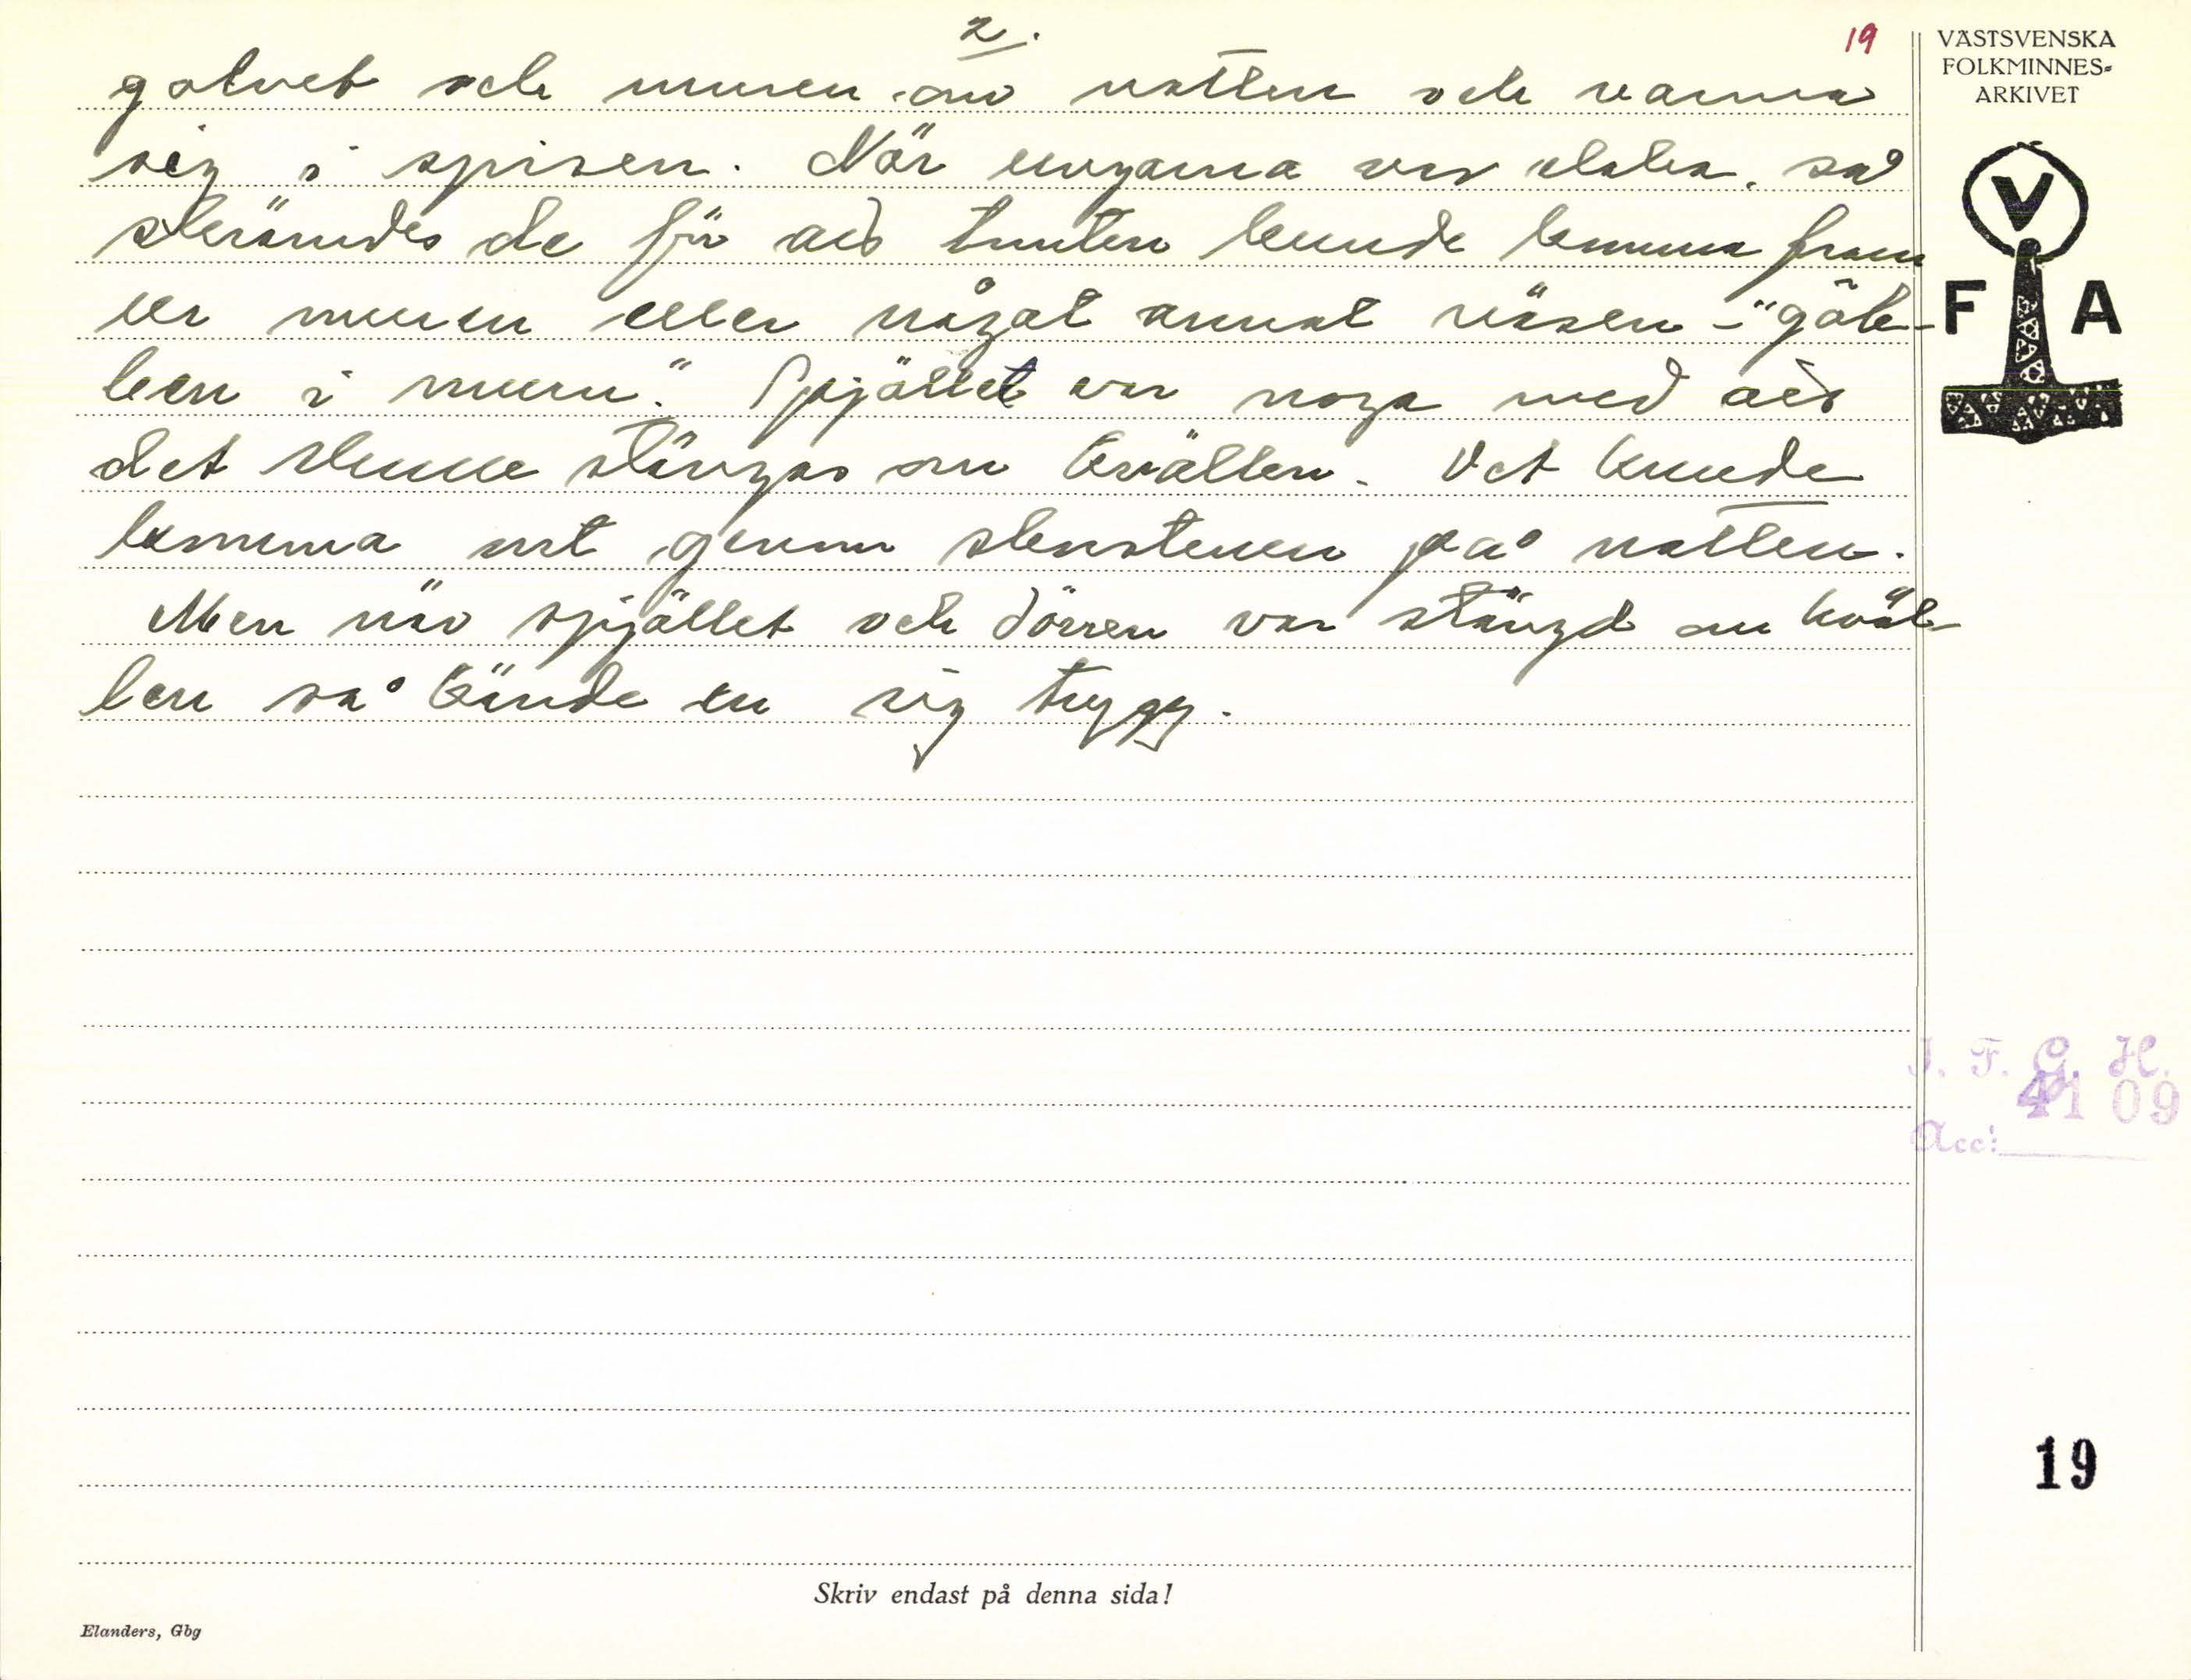 2.
19
golvet och muren om natten och värma
sig i spisen. När ungarna var elaka, så
skrämdes de för att tomten kunde komma fram
ur muren eller något annat väsen - "gub-
ben i muren." Spjället var noga med att
det skulle stängas om kvällen. Det kunde
komma ut genom skorstenen på natten.
Men när spjället och dörren var stängd om kväl-
len så kände en sig trygg.
VÄSTSVENSKA
FOLKMINNES-
ARKIVET
V
F A
I. F. G. H.
4109
Acc:
19
Skriv endast på denna sida!
Elanders, Gbg